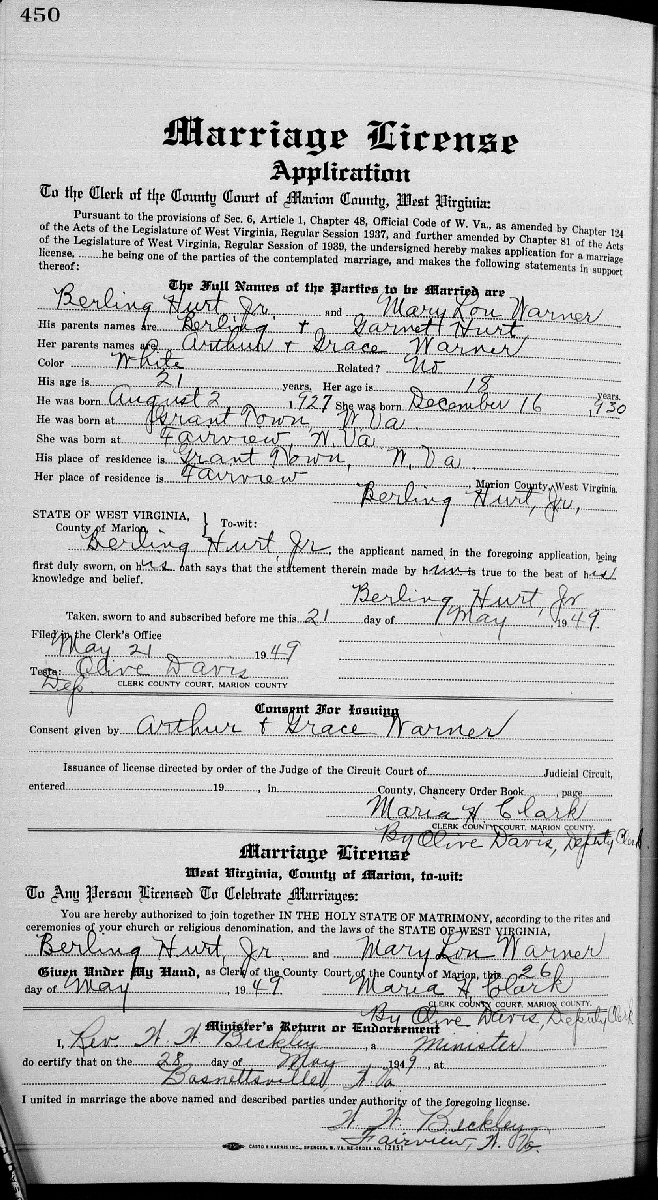 450
Marriage License
Application
To the Clerk of the County Court of Marion County, West Virginia:
Pursuant to the provisions of Sec. 6, Article 1, Chapter 48, Official Code of W. Va., as amended by Chapter 124
of the Acts of the Legislature of West Virginia, Regular Session 1937, and further amended by Chapter 81 of the Acts
of the Legislature of West Virginia, Regular Session of 1939, the undersigned hereby makes application for a marriage
license, ........he being one of the parties of the contemplated marriage, and makes the following statements in support
thereof:
The Full Names of the Parties to be Married are
Berling Hurt Jr. and Mary Lou Warner
His parents names are Berling + Garnett Hurt
Her parents names are Arthur + Grace Warner
Color White Related? No
His age is 21 years, Her age is 18 years.
He was born August 2, 1927 She was born December 16, 1930
He was born at Grant Town, W Va
She was born at Fairview, W. Va
His place of residence is Grant Town, W. Va
Her place of residence is Fairview, Marion County, West Virginia.
Berling Hurt, Jr,
STATE OF WEST VIRGINIA,
County of Marion, } To-wit:
Berling Hurt, Jr the applicant named in the foregoing application, being
first duly sworn, on his oath says that the statement therein made by him is true to the best of his
knowledge and belief.
Berling Hurt, Jr
Taken, sworn to and subscribed before me this 21 day of May 1949
Filed in the Clerk's Office
May 21 1949
Teste: Olive Davis
Dep CLERK COUNTY COURT, MARION COUNTY
Consent For Issuing
Consent given by Arthur + Grace Warner
Issuance of license directed by order of the Judge of the Circuit Court of Judicial Circuit,
entered 19 , in County, Chancery Order Book , page
Maria H. Clark
CLERK COUNTY COURT, MARION COUNTY.
By Olive Davis, Deputy Clerk
Marriage License
West Virginia, County of Marion, to-wit:
To Any Person Licensed To Celebrate Marriages:
You are hereby authorized to join together IN THE HOLY STATE OF MATRIMONY, according to the rites and
ceremonies of your church or religious denomination, and the laws of the STATE OF WEST VIRGINIA,
Berling Hurt, Jr. and Mary Lou Warner
Given Under My Hand, as Clerk of the County Court of the County of Marion, this 26
day of May, 1949 Maria H. Clark
CLERK COUNTY COURT, MARION COUNTY.
By Olive Davis, Deputy Clerk
Minister's Return or Endorsement
I, Rev. W. W. Beckley, a Minister
do certify that on the 28 day of May 1949, at
Basnettsville W. Va
I united in marriage the above named and described parties under authority of the foregoing license.
W. W. Beckley
Fairview, W. Va.
CASTO & HARRIS INC., SPENCER, W. VA. RE-ORDER NO. 12151